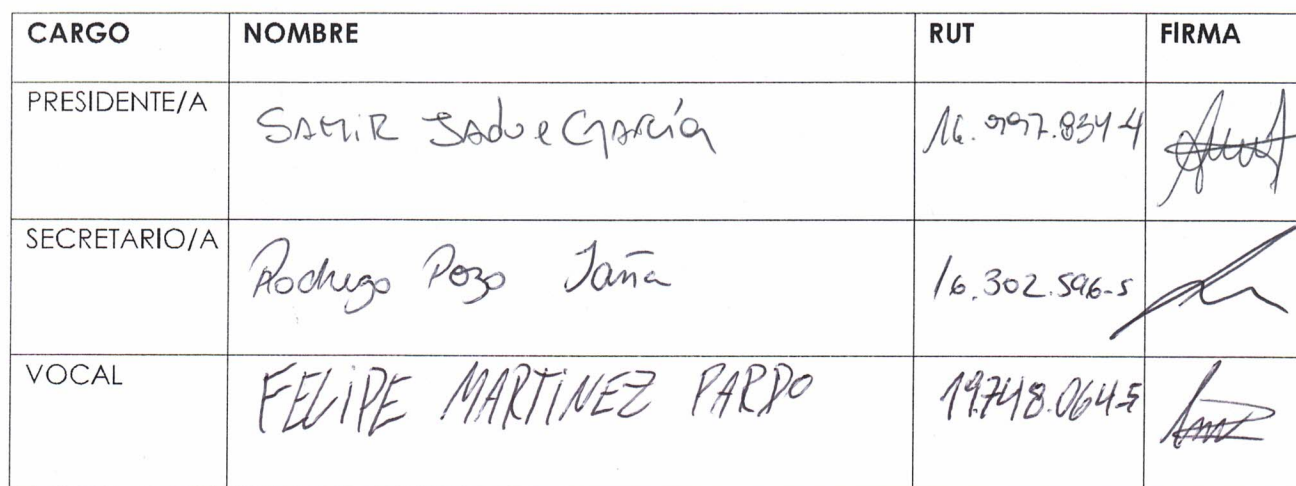 CARGO NOMBRE RUT FIRMA
PRESIDENTE/A SAMIR JADUE García 16.997.834-4
SECRETARIO/A Rodrigo Pozo Jaña 16.302.596-5
VOCAL FELIPE MARTINEZ PARDO 19.748.064-5